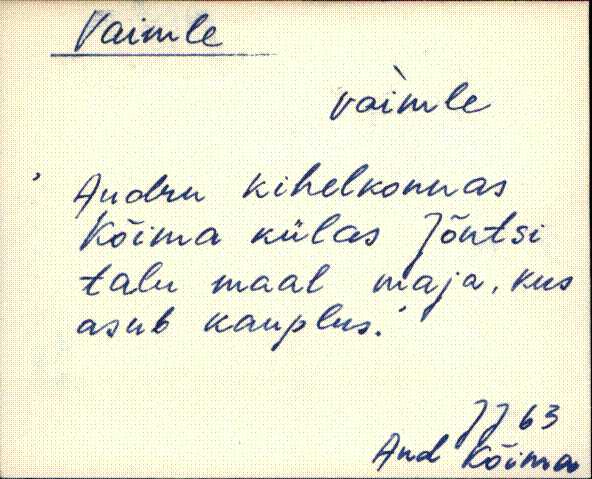 Vaimle
vàimle
' Audru kihelkonnas
Kõima külas Jõntsi
talu maal maja, kus
asub kauplus.'
JJ 63
Aud Kõima